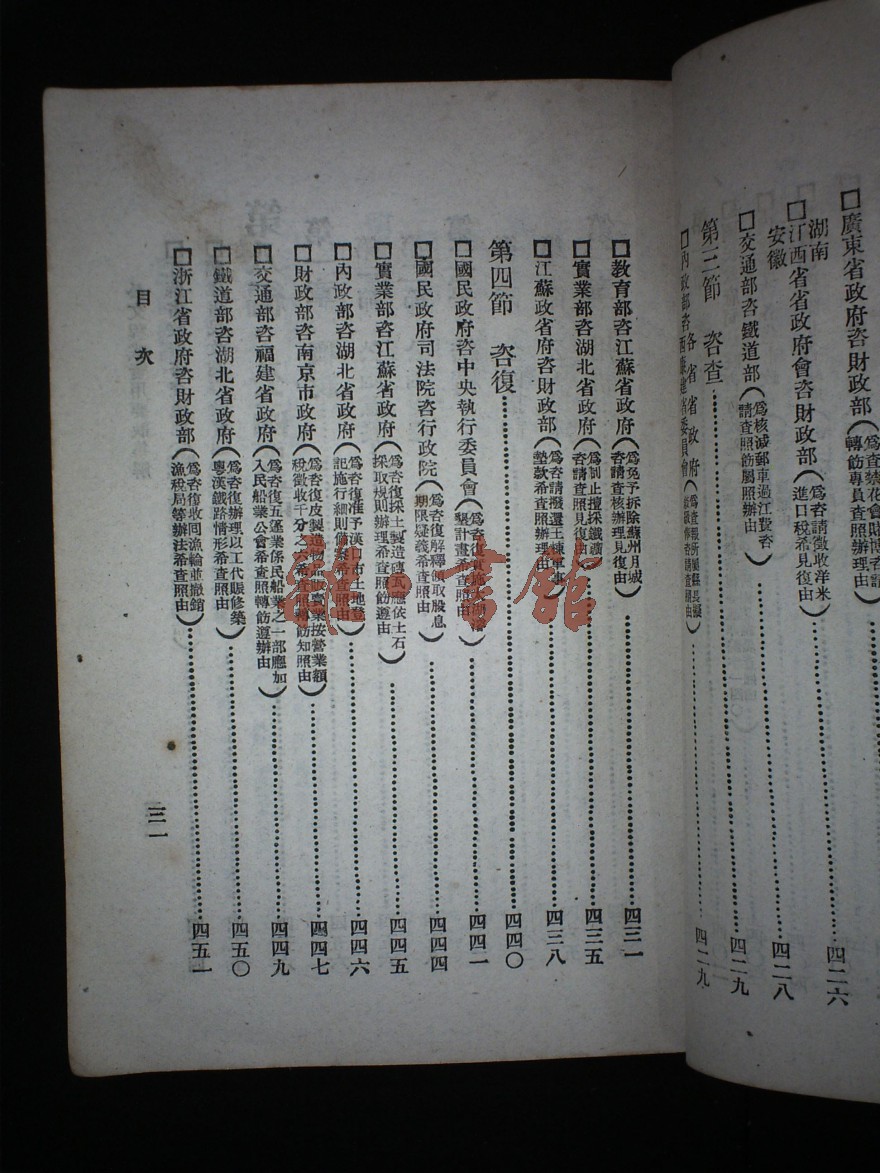 廣東省政府咨財政部
湖南
江西省省政府會咨財政部（為咨請徵收洋米進口稅希見復由）……四二六
安徽
交通部咨鐵道部（為核減郵車過江費咨請查照飭屬照辦由）……四二八
第三節　咨查……四二九
四二九
教育部咨江蘇省政府（為免予拆除蘇州月城咨請查核辦理見復由）……四三一
實業部咨湖北省政府（為制止擅採鐵礦咨請查照見復由）……四三五
江蘇政省府咨財政部（為咨請撥還墊款希查照辦理由）……四三八
第四節　咨復……四四〇
國民政府咨中央執行委員會（為咨復墾計畫希查照由）……四四二
國民政府司法院咨行政院（為咨復解釋領取股息期限疑義希查照由）……四四四
實業部咨江蘇省政府（為咨復採土製造磚瓦應依土石採取規則辦理希查照飭遵由）……四四五
內政部咨湖北省政府（為咨復准予漢口市土地登記施行細則備案希查照由）……四四六
財政部咨南京市政府（為咨復皮製造物品販賣業按營業額稅徵收千分之六希查照轉飭知照由）……四四七
交通部咨福建省政府（為咨復五蓬業係民船業之一部應加入民船業公會希查照轉飭遵辦由）……四四九
鐵道部咨湖北省政府（為咨復辦理以工代賑修築粵漢鐵路情形希查照由）……四五〇
浙江省政府咨財政部（為咨復收回漁輪並撤銷漁稅局等辦法希查照由）……四五一
目次
三一